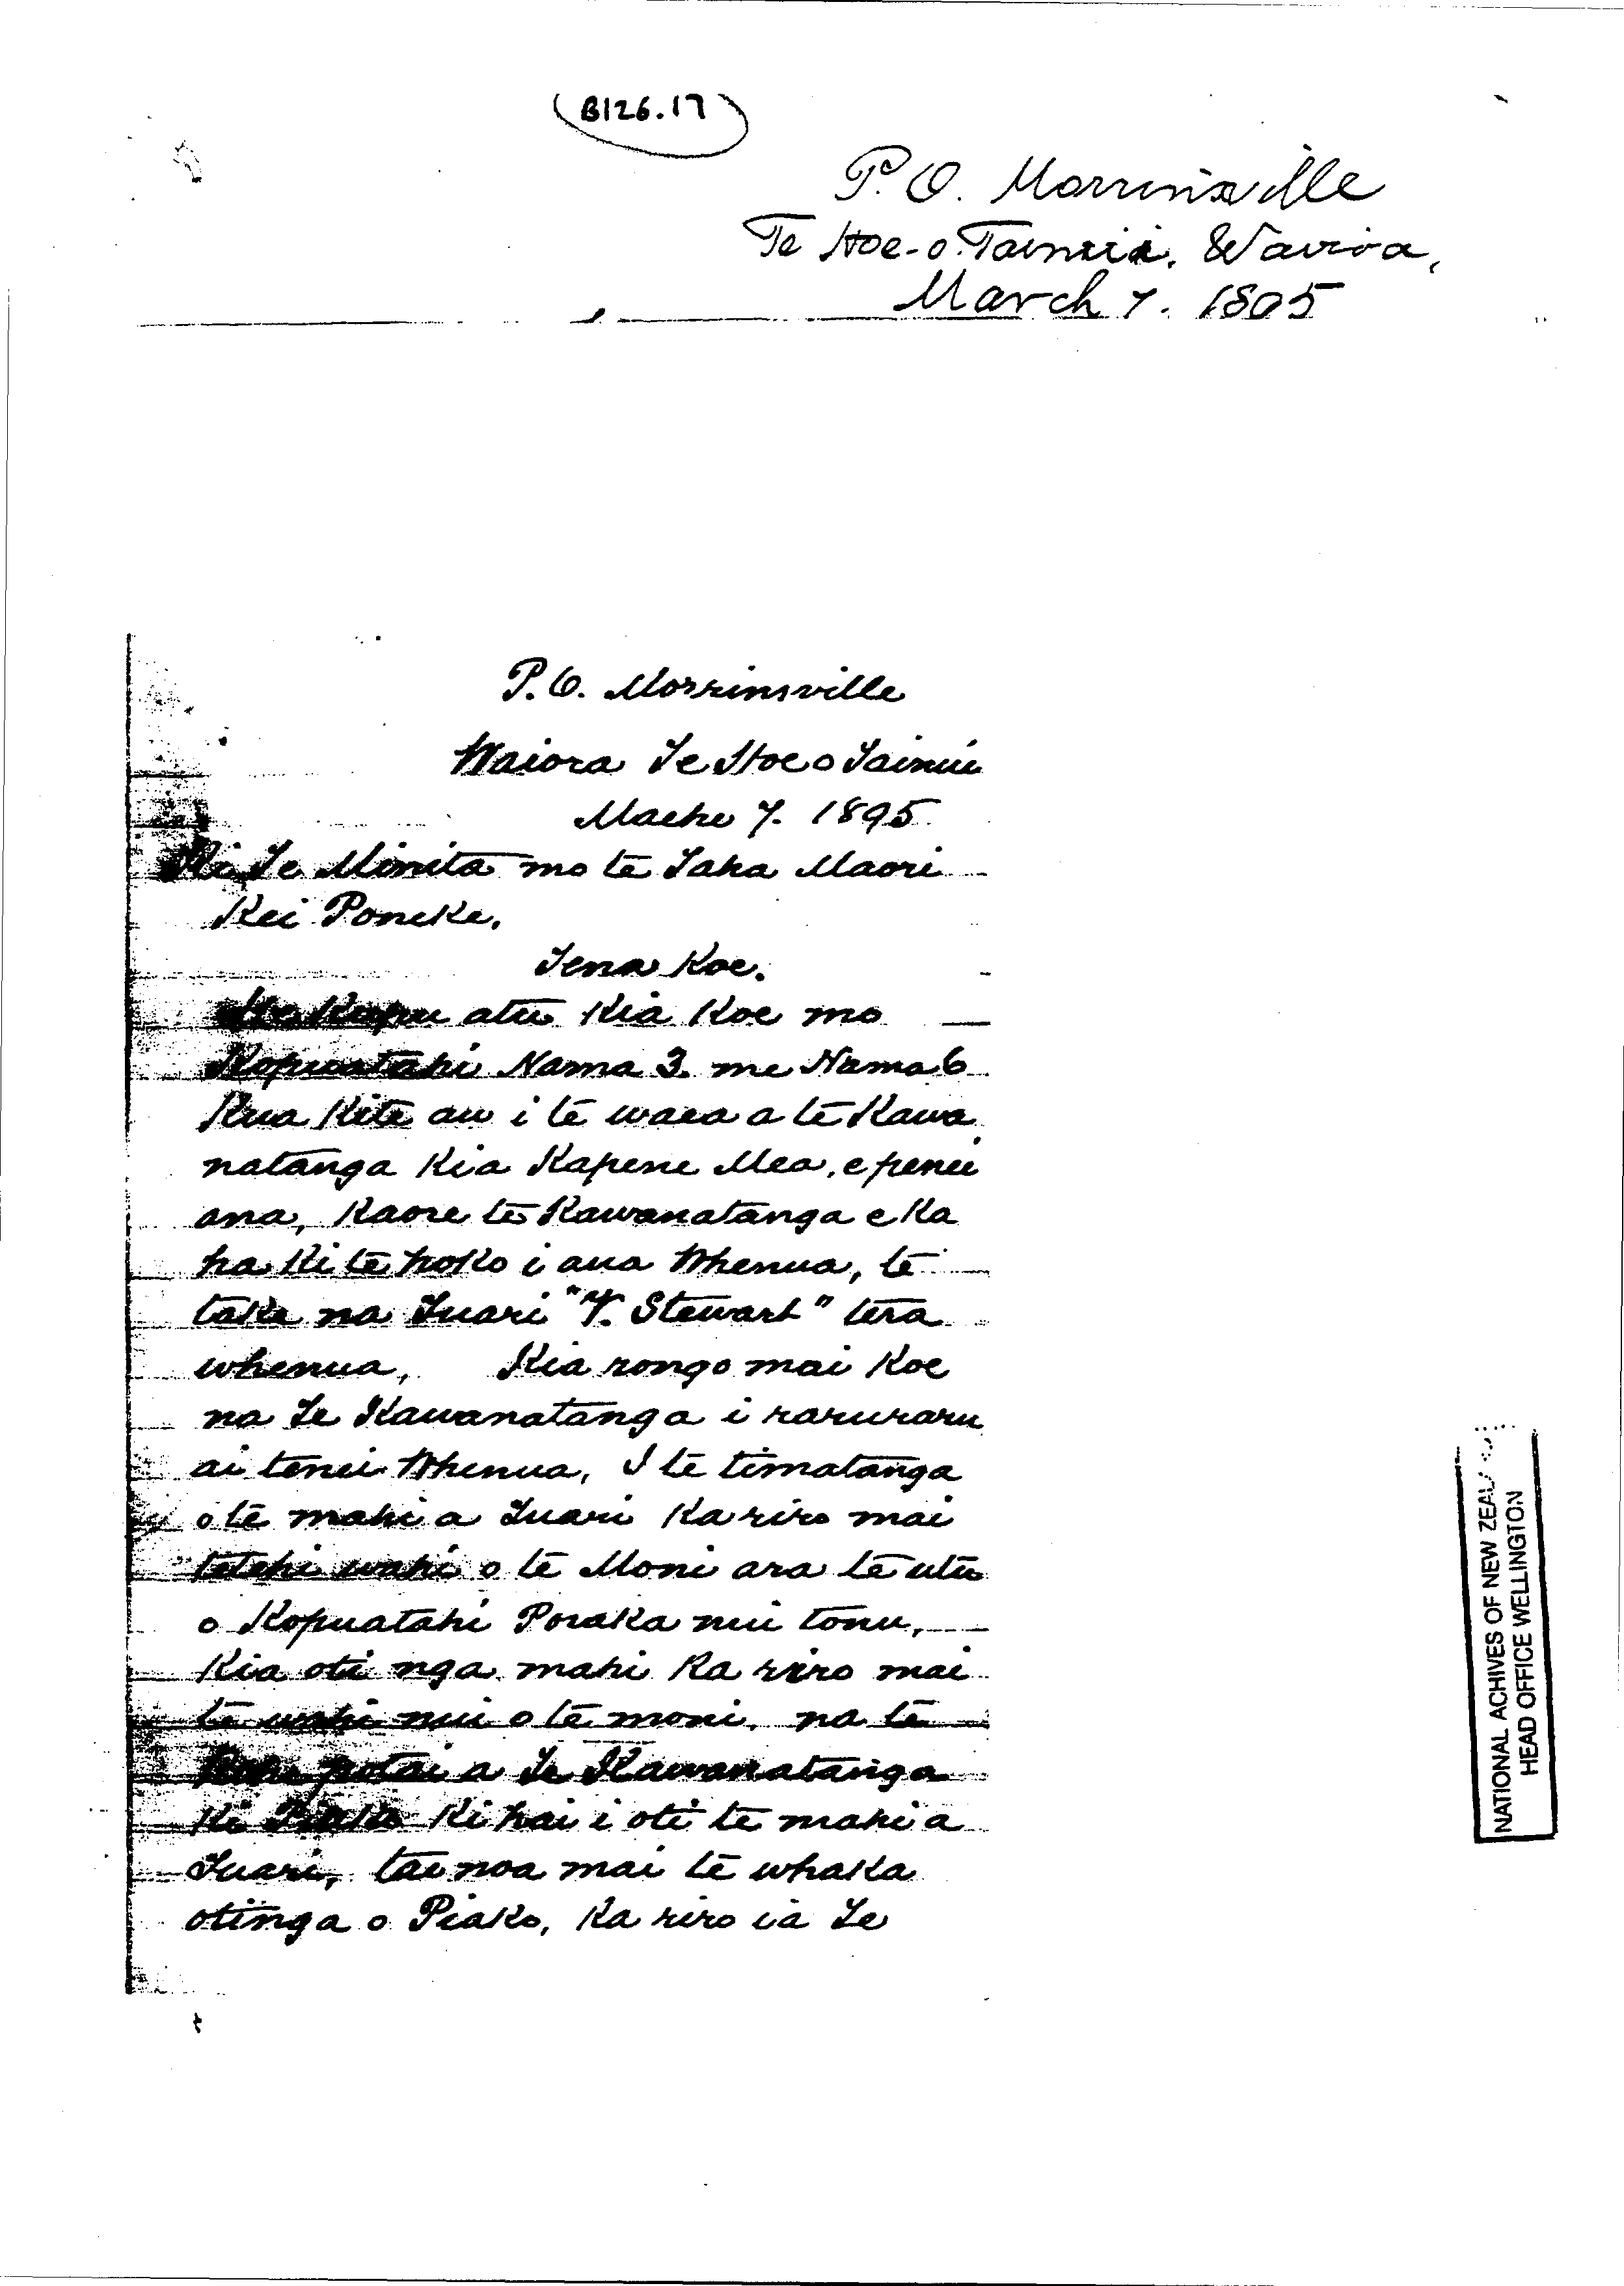 B126.17
P.O. Morrinsville
Te Hoe-o-Tainui, Waiora,
March 7. 1895
P.O. Morrinsville
Waiora Te Hoe o Tainui
Maehe 7. 1895
Ki Te Minita mo te Taha Maori
Kei Poneke.
Tena Koe.
He Kupu atu Kia Koe mo
Kopuatahi Nama 3. me Nama 6
Kua Kite au i te waea a te Kawa
natanga Kia Kapene Mea, e penei
ana, Kaore te Kawanatanga e Ka
ha Ki te hoko i aua Whenua, te
take na Tuari "Y. Stewart" tera
whenua, Kia rongo mai Koe
na Te Kawanatanga i raruraru
ai tenei Whenua, I te timatanga
o te mahi a Tuari Ka riro mai
tetehi wahi o te Moni ara te utu
o Kopuatahi Poraka nui tonu,
Kia oti nga mahi Ka riro mai
te wahi nui o te moni, na te
potai a Te Kawanatanga
Ki Piako Ki hai i oti te mahi a
Tuari, tae noa mai te whaka
otinga o Piako, Ka riro ia Te
NATIONAL ACHIVES OF NEW ZEAL
HEAD OFFICE WELLINGTON